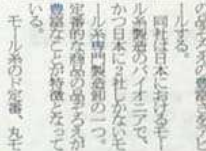 ールする。
同社は日本におけるモー
ル糸製造のパイオニアで、
かつ日本に2社しかないモ
ール糸専門製造卸の一つ。
定番的な商品の品ぞろえが
豊富なことが特徴となって
いる。
モール糸のド定番、丸モ